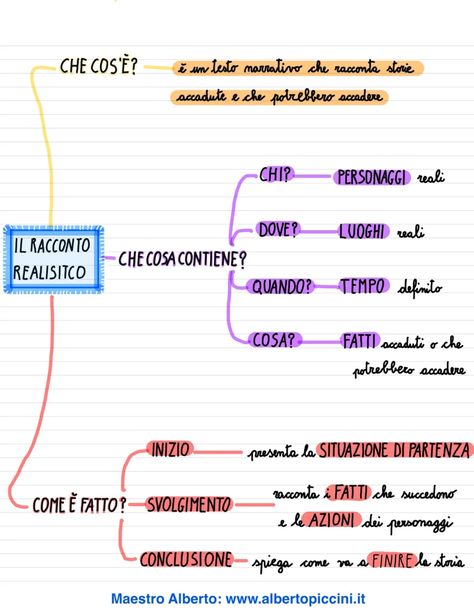 CHE COS'È?
è un testo narrativo che racconta storie
accadute e che potrebbero accadere
IL RACCONTO
REALISITCO
CHE COSA CONTIENE?
CHI? PERSONAGGI reali
DOVE? LUOGHI reali
QUANDO? TEMPO definito
COSA? FATTI accaduti o che
potrebbero accadere
COME È FATTO?
INIZIO presenta la SITUAZIONE DI PARTENZA
SVOLGIMENTO racconta i FATTI che succedono
e le AZIONI dei personaggi
CONCLUSIONE spiega come va a FINIRE la storia
Maestro Alberto: www.albertopiccini.it